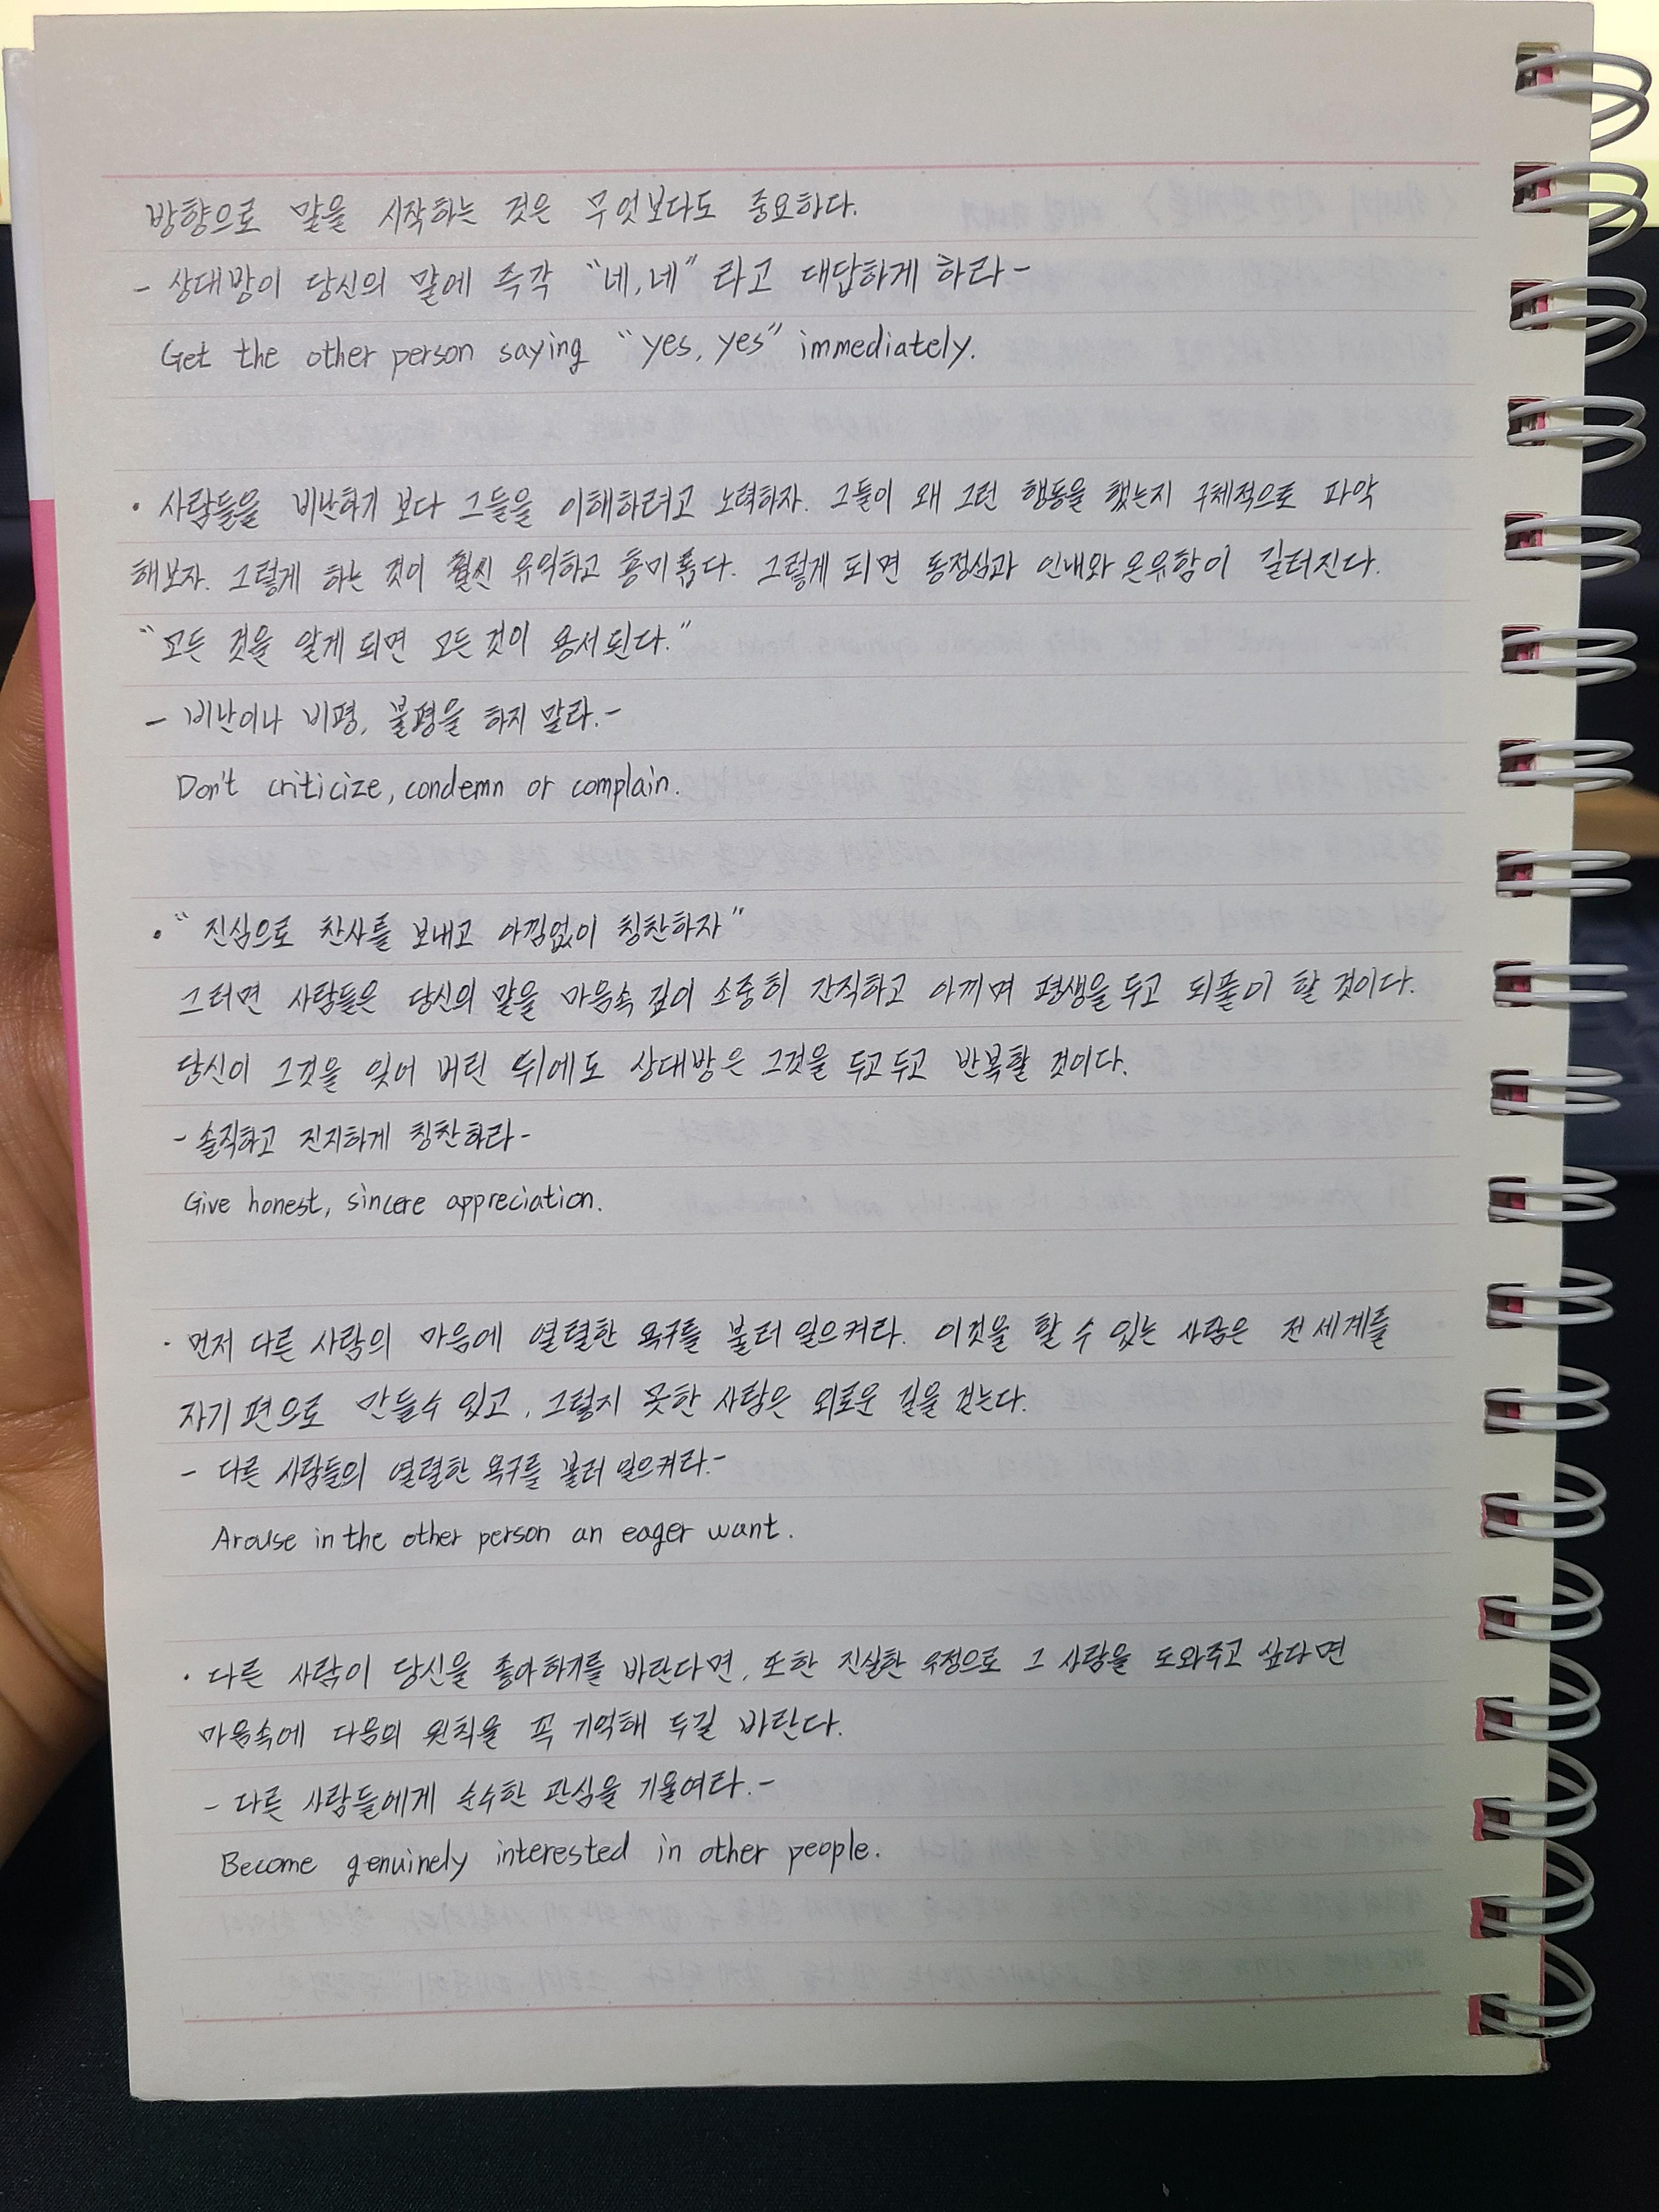 방향으로 말을 시작하는 것은 무엇보다도 중요하다.
- 상대방이 당신의 말에 즉각 "네, 네" 라고 대답하게 하라 -
Get the other person saying "yes, yes" immediately.
· 사람들을 비난하기 보다 그들을 이해하려고 노력하자. 그들이 왜 그런 행동을 했는지 구체적으로 파악
해보자. 그렇게 하는 것이 훨씬 유익하고 흥미롭다. 그렇게 되면 동정심과 인내와 온유함이 길러진다.
"모든 것을 알게 되면 모든 것이 용서된다."
- 비난이나 비평, 불평을 하지 말라. -
Don't criticize, condemn or complain.
· "진심으로 찬사를 보내고 아낌없이 칭찬하자"
그러면 사람들은 당신의 말을 마음속 깊이 소중히 간직하고 아끼며 평생을 두고 되풀이 할 것이다.
당신이 그것을 잊어 버린 뒤에도 상대방은 그것을 두고두고 반복할 것이다.
- 솔직하고 진지하게 칭찬하라 -
Give honest, sincere appreciation.
· 먼저 다른 사람의 마음에 열렬한 욕구를 불러 일으켜라. 이것을 할 수 있는 사람은 전 세계를
자기 편으로 만들수 있고, 그렇지 못한 사람은 외로운 길을 걷는다.
- 다른 사람들의 열렬한 욕구를 불러 일으켜라. -
Arouse in the other person an eager want.
· 다른 사람이 당신을 좋아하기를 바란다면, 또한 진실한 우정으로 그 사람을 도와주고 싶다면
마음속에 다음의 원칙을 꼭 기억해 두길 바란다.
- 다른 사람들에게 순수한 관심을 기울여라. -
Become genuinely interested in other people.